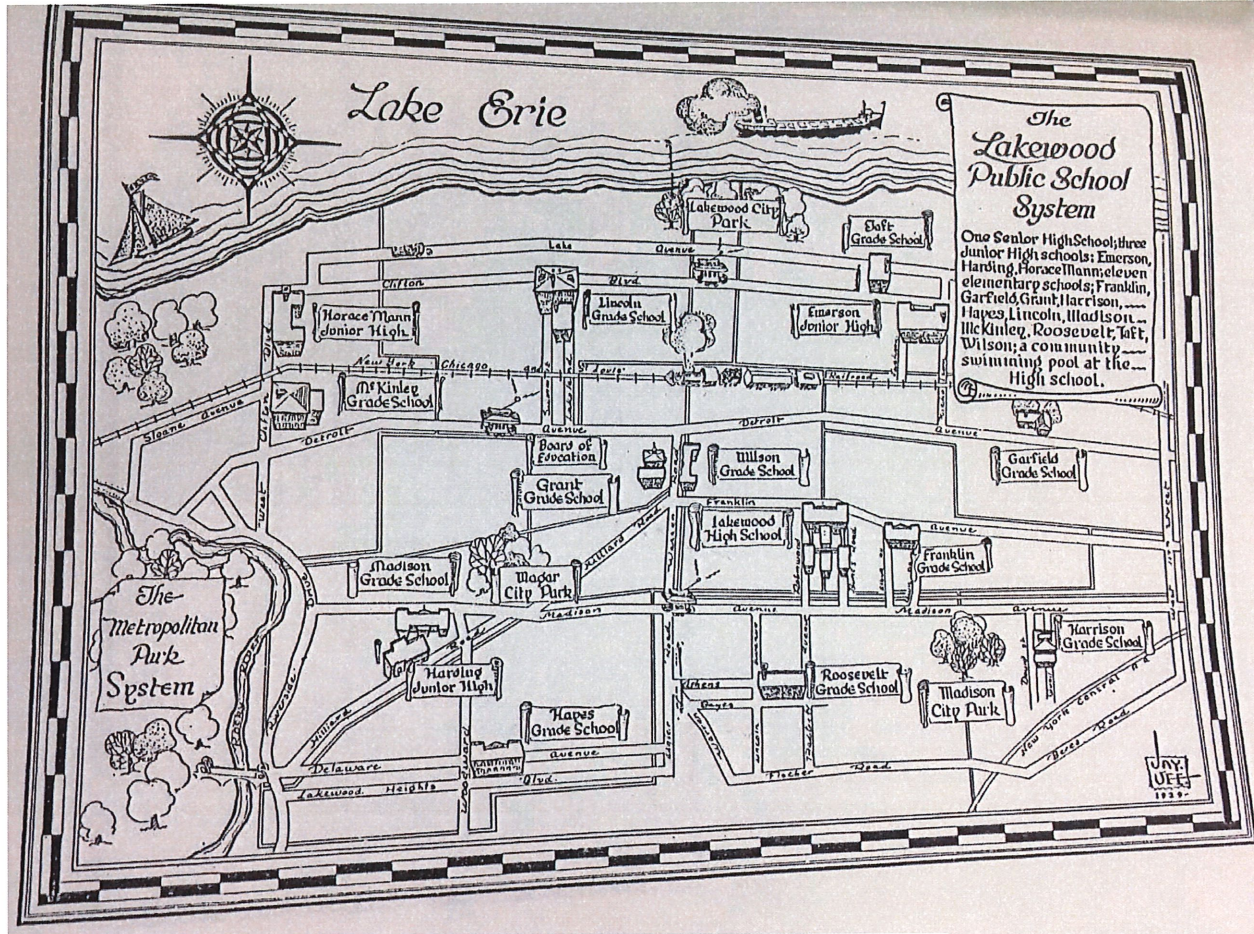 Lake Erie
The
Lakewood
Public School
System
One Senior High School; three
Junior High schools; Emerson,
Harding, Horace Mann; eleven
elementary schools; Franklin,
Garfield, Grant, Harrison,
Hayes, Lincoln, Madison
McKinley, Roosevelt, Taft,
Wilson; a community
swimming pool at the
High school.
Lakewood City
Park
Taft
Grade School
Lake Avenue
Clifton Blvd.
Horace Mann
Junior High
Lincoln
Grade School
Emerson
Junior High
New York Chicago and St Louis Railroad
McKinley
Grade School
Sloane Avenue
Detroit Avenue Detroit Avenue
Board of
Education
Wilson
Grade School
Garfield
Grade School
Grant
Grade School
Franklin Avenue
Lakewood
High School
Franklin
Grade School
West
West
Hilliard Road
Warren
Madison
Grade School
Madar
City Park
Madison Avenue Madison Avenue
The
Metropolitan
Park
System
Harding
Junior High
Hilliard Road
Riverside Drive
Rocky River
Roosevelt
Grade School
Harrison
Grade School
Madison
City Park
Athens
Hayes
Hayes
Grade School
Delaware Avenue
Lakewood Heights Blvd.
Woodward
Lincoln
Fischer Road
New York Central R.R.
Berea Road
JAY
VEE
1929